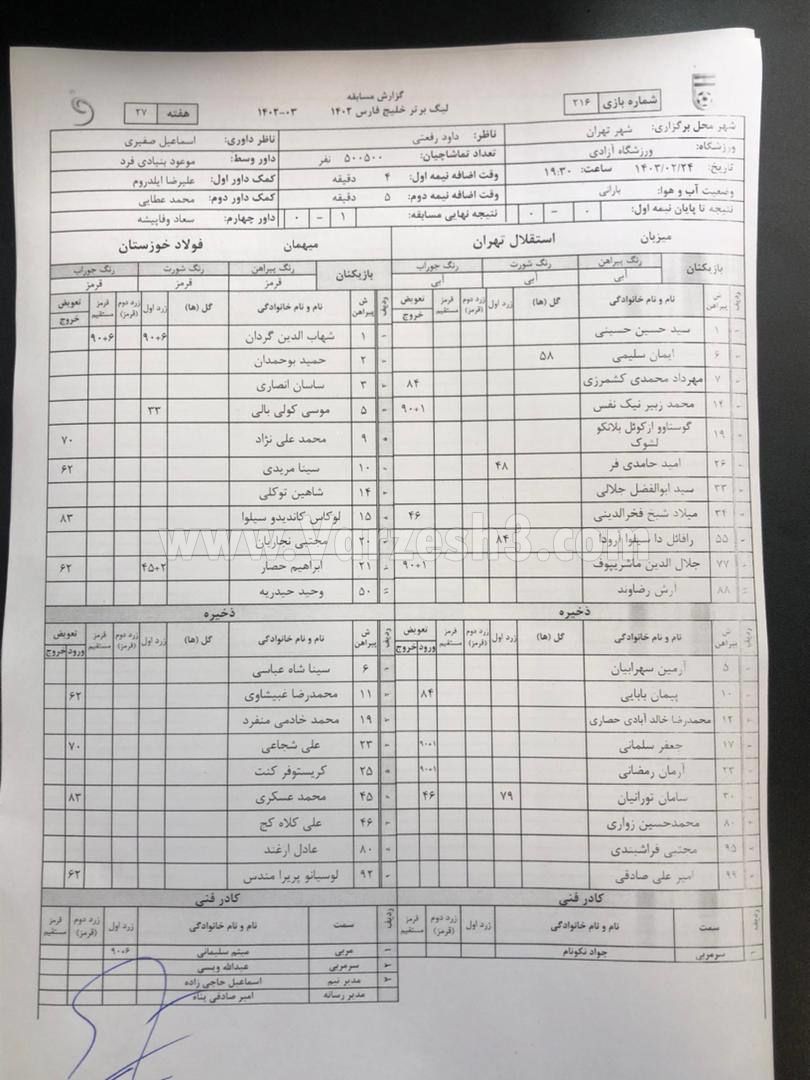 گزارش مسابقه
لیگ برتر خلیج فارس ۱۴۰۲ ۱۴۰۲-۰۳
شماره بازی ۲۱۶
هفته ۲۷
شهر محل برگزاری: شهر تهران
ورزشگاه: ورزشگاه آزادی
تاریخ: ۱۴۰۳/۰۲/۲۴ ساعت: ۱۹:۳۰
وضعیت آب و هوا: بارانی
نتیجه تا پایان نیمه اول: ۰ - ۰
ناظر: داود رفعتی
تعداد تماشاچیان: ۵۰۰۵۰۰ نفر
وقت اضافه نیمه اول: ۴ دقیقه
وقت اضافه نیمه دوم: ۵ دقیقه
نتیجه نهایی مسابقه: ۱ - ۰
ناظر داوری: اسماعیل صفیری
داور وسط: موعود بنیادی فرد
کمک داور اول: علیرضا ایلدروم
کمک داور دوم: محمد عطایی
داور چهارم: سعاد وفاپیشه
میزبان استقلال تهران
بازیکنان رنگ پیراهن رنگ شورت رنگ جوراب
آبی آبی آبی
ردیف ش پیراهن نام و نام خانوادگی گل (ها) زرد اول زرد دوم (قرمز) قرمز مستقیم تعویض خروج
۱ سید حسین حسینی
۶ ایمان سلیمی ۵۸
۷ مهرداد محمدی کشمرزی ۸۴
۱۴ محمد زبیر نیک نفس ۹۰+۱
۱۹ گوستاوو ازکوئل بلانکو لشوک
۲۶ امید حامدی فر ۴۸
۳۳ سید ابوالفضل جلالی
۳۴ میلاد شیخ فخرالدینی ۴۶
۵۵ رافائل دا سیلوا آرودا ۸۴
۷۷ جلال الدین ماشریپوف ۹۰+۱
۸۸ آرش رضاوند
ذخیره
ردیف ش پیراهن نام و نام خانوادگی گل (ها) زرد اول زرد دوم (قرمز) قرمز مستقیم تعویض ورود خروج
۵ آرمین سهرابیان
۱۰ پیمان بابایی ۸۴
۱۲ محمدرضا خالد آبادی حصاری
۱۷ جعفر سلمانی ۹۰+۱
۲۳ آرمان رمضانی ۹۰+۱
۳۰ سامان تورانیان ۷۹ ۴۶
۸۰ محمدحسین زواری
۹۵ مجتبی فراشبندی
۹۹ امیر علی صادقی
کادر فنی
ردیف سمت نام و نام خانوادگی زرد اول زرد دوم (قرمز) قرمز مستقیم
۱ سرمربی جواد نکونام
میهمان فولاد خوزستان
بازیکنان رنگ پیراهن رنگ شورت رنگ جوراب
قرمز قرمز قرمز
ردیف ش پیراهن نام و نام خانوادگی گل (ها) زرد اول زرد دوم (قرمز) قرمز مستقیم تعویض خروج
۱ شهاب الدین گردان ۹۰+۶ ۹۰+۶
۲ حمید بوحمدان
۳ ساسان انصاری
۵ موسی کولی بالی ۳۳
۹ محمد علی نژاد ۷۰
۱۰ سینا مریدی ۶۲
۱۴ شاهین توکلی
۱۵ لوکاس کاندیدو سیلوا ۸۳
۲۰ مجتبی نجاریان
۲۱ ابراهیم حصار ۴۵+۲ ۶۲
۵۰ وحید حیدریه
ذخیره
ردیف ش پیراهن نام و نام خانوادگی گل (ها) زرد اول زرد دوم (قرمز) قرمز مستقیم تعویض ورود خروج
۶ سینا شاه عباسی
۱۱ محمدرضا غبیشاوی ۶۲
۱۹ محمد خادمی منفرد
۲۳ علی شجاعی ۷۰
۲۵ کریستوفر کنت
۴۵ محمد عسکری ۸۳
۴۶ علی کلاه کج
۸۰ عادل ارغند
۹۲ لوسیانو پریرا مندس ۶۲
کادر فنی
ردیف سمت نام و نام خانوادگی زرد اول زرد دوم (قرمز) قرمز مستقیم
۱ مربی میثم سلیمانی ۹۰+۶
۲ سرمربی عبدالله ویسی
۳ مدیر تیم اسماعیل حاجی زاده
مدیر رسانه امیر صادقی پناه
www.Varzesh3.com